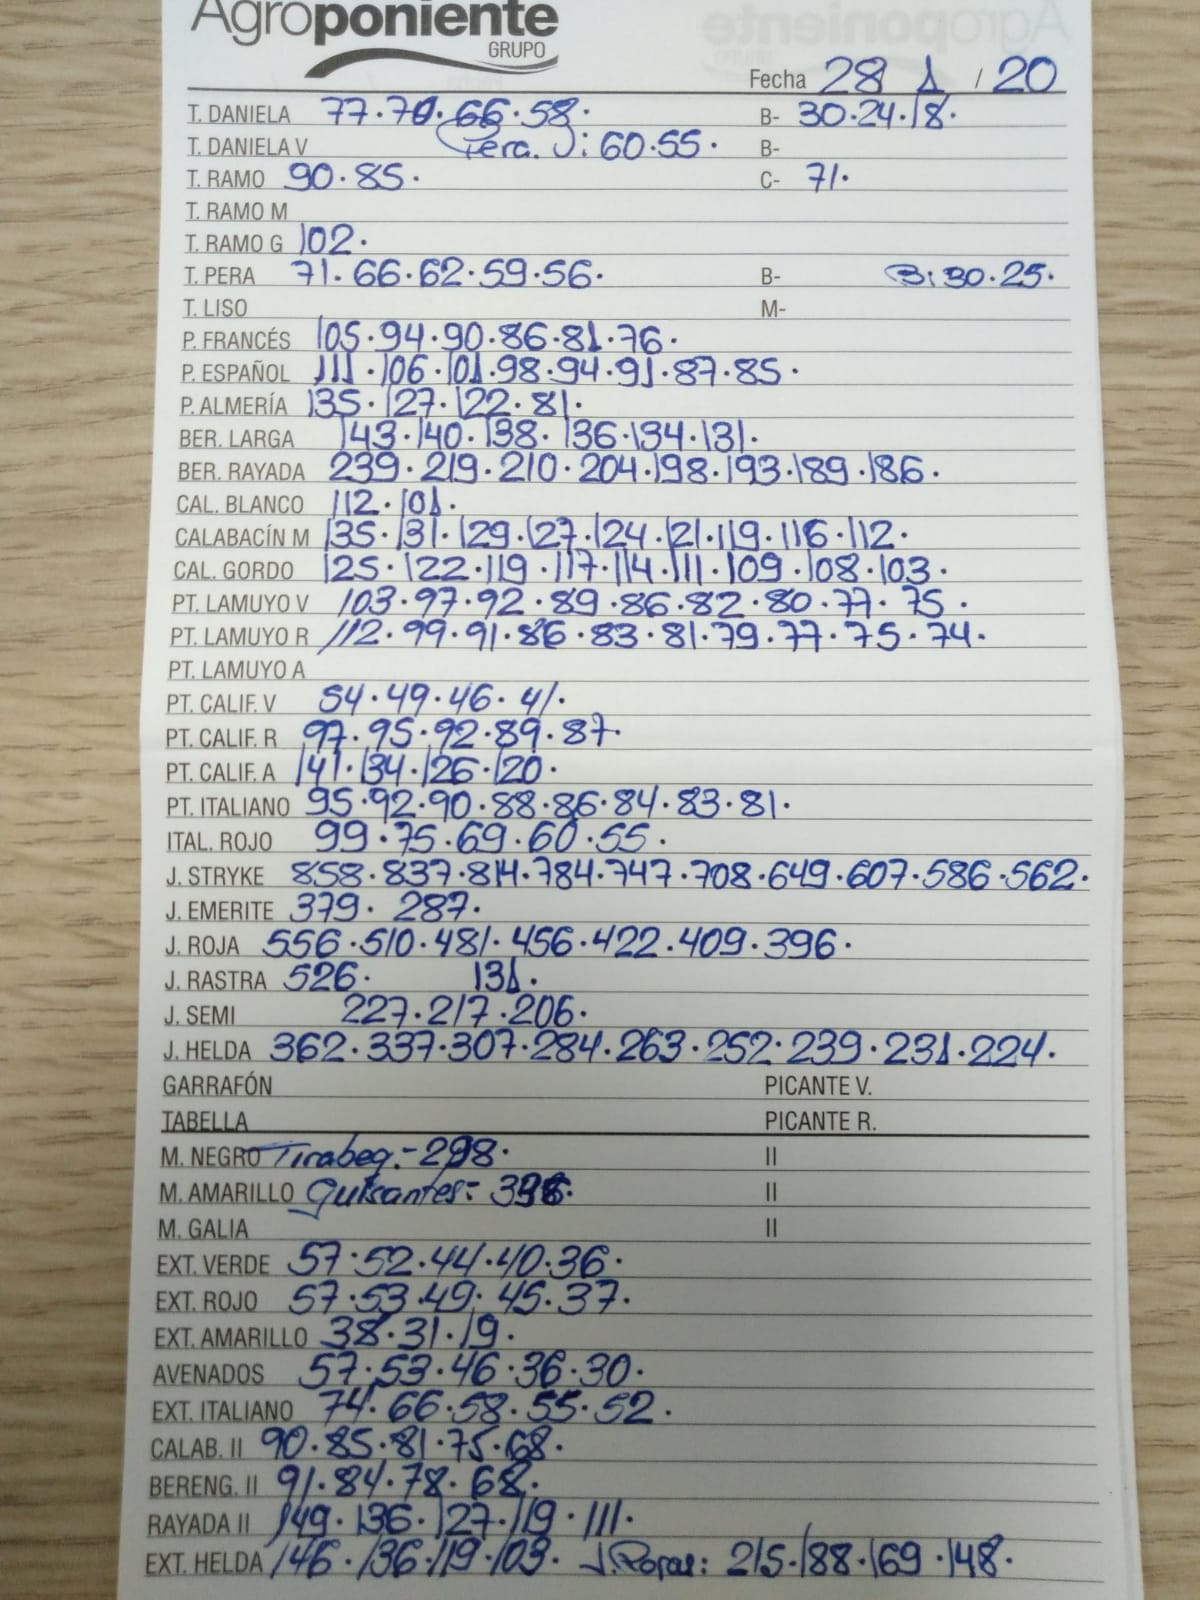 Agroponiente
GRUPO
Fecha 28 1 / 20
T. DANIELA 77·70·66·58· B- 30·24·18·
T. DANIELA V Pera. J: 60·55· B-
T. RAMO 90·85· C- 71·
T. RAMO M
T. RAMO G 102·
T. PERA 71·66·62·59·56· B- B: 30·25·
T. LISO M-
P. FRANCÉS 105·94·90·86·81·76·
P. ESPAÑOL 111·106·101·98·94·91·87·85·
P. ALMERÍA 135·127·122·81·
BER. LARGA 143·140·138·136·134·131·
BER. RAYADA 239·219·210·204·198·193·189·186·
CAL. BLANCO 112·101·
CALABACÍN M 135·131·129·127·124·121·119·116·112·
CAL. GORDO 125·122·119·117·114·111·109·108·103·
PT. LAMUYO V 103·97·92·89·86·82·80·77·75·
PT. LAMUYO R 112·99·91·86·83·81·79·77·75·74·
PT. LAMUYO A
PT. CALIF. V 54·49·46·41·
PT. CALIF. R 97·95·92·89·87·
PT. CALIF. A 141·134·126·120·
PT. ITALIANO 95·92·90·88·86·84·83·81·
ITAL. ROJO 99·75·69·60·55·
J. STRYKE 858·837·814·784·747·708·649·607·586·562·
J. EMERITE 379· 287·
J. ROJA 556·510·481·456·422·409·396·
J. RASTRA 526· 131·
J. SEMI 227·217·206·
J. HELDA 362·337·307·284·263·252·239·231·224·
GARRAFÓN PICANTE V.
TABELLA PICANTE R.
M. NEGRO Tirabeq.- 298· II
M. AMARILLO Guisantes: II
M. GALIA II
EXT. VERDE 57·52·44·40·36·
EXT. ROJO 57·53·49·45·37·
EXT. AMARILLO 38·31·19·
AVENADOS 57·53·46·36·30·
EXT. ITALIANO 74·66·58·55·52·
CALAB. II 90·85·81·75·68·
BERENG. II 91·84·78·68·
RAYADA II 149·136·127·119·111·
EXT. HELDA 146·136·119·103· J. 215·188·169·148·